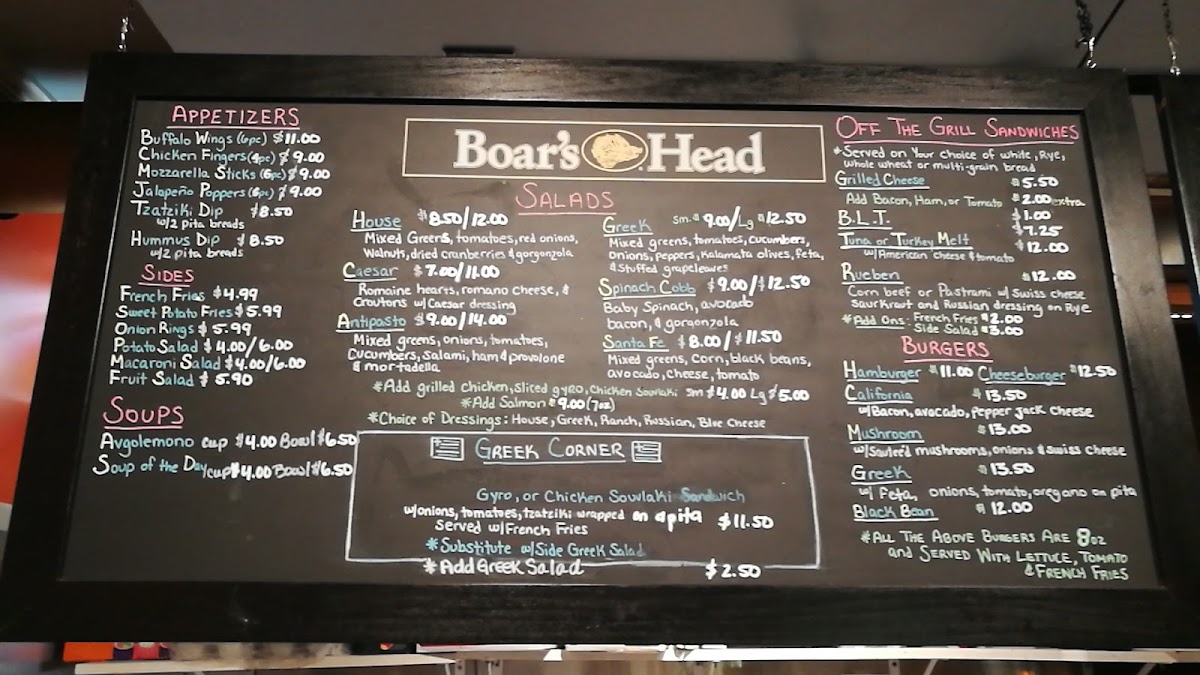 APPETIZERS
Buffalo Wings (6pc) $11.00
Chicken Fingers (4pc) $9.00
Mozzarella Sticks (6pc) $9.00
Jalapeño Poppers (6pc) $9.00
Tzatziki Dip $8.50
w/2 pita breads
Hummus Dip $8.50
w/2 pita breads
SIDES
French Fries $4.99
Sweet Potato Fries $5.99
Onion Rings $5.99
Potato Salad $4.00/6.00
Macaroni Salad $4.00/6.00
Fruit Salad $5.90
SOUPS
Avgolemono cup $4.00 Bowl $6.50
Soup of the Day/cup $4.00 Bowl $6.50
Boar's Head
SALADS
House $8.50/12.00
Mixed Greens, tomatoes, red onions,
Walnuts, dried cranberries & gorgonzola
Caesar $7.00/11.00
Romaine hearts, romano cheese, &
croutons w/Caesar dressing
Antipasto $9.00/14.00
Mixed greens, onions, tomatoes,
Cucumbers, salami, ham & provolone
& mortadella
Greek sm. $9.00/Lg $12.50
Mixed greens, tomatoes, cucumbers,
onions, peppers, Kalamata olives, feta,
& Stuffed grapeleaves
Spinach Cobb $9.00/$12.50
Baby Spinach, avocado
bacon, & gorgonzola
Santa Fe $8.00/$11.50
Mixed greens, corn, black beans,
avocado, cheese, tomato
*Add grilled chicken, Sliced gyro, Chicken Sowlaki sm $4.00 Lg $5.00
*Add Salmon $9.00 (7oz)
*Choice of Dressings: House, Greek, Ranch, Russian, Blue Cheese
GREEK CORNER
Gyro, or Chicken Sowlaki Sandwich
w/onions, tomatoes, tzatziki wrapped on a pita $11.50
served w/French Fries
*Substitute w/Side Greek Salad
*Add Greek Salad $2.50
OFF THE GRILL SANDWICHES
*Served on Your choice of white, Rye,
whole wheat or multi-grain bread
Grilled Cheese $5.50
Add Bacon, Ham, or Tomato $2.00 extra
$1.00
B.L.T. $7.25
Tuna or Turkey Melt $12.00
w/American cheese & tomato
Rueben $12.00
Corn beef or Pastrami w/Swiss cheese
Saurkraut and Russian dressing on Rye
*Add Ons: French Fries $2.00
Side Salad $3.00
BURGERS
Hamburger $11.00 Cheeseburger $12.50
California $13.50
w/Bacon, avocado, pepper jack cheese
Mushroom $13.00
w/sautee'd mushrooms, onions & swiss cheese
Greek $13.50
w/ feta, onions, tomato, oregano on pita
Black Bean $12.00
*ALL THE ABOVE BURGERS ARE 8oz
and SERVED WITH LETTUCE, TOMATO
& FRENCH FRIES